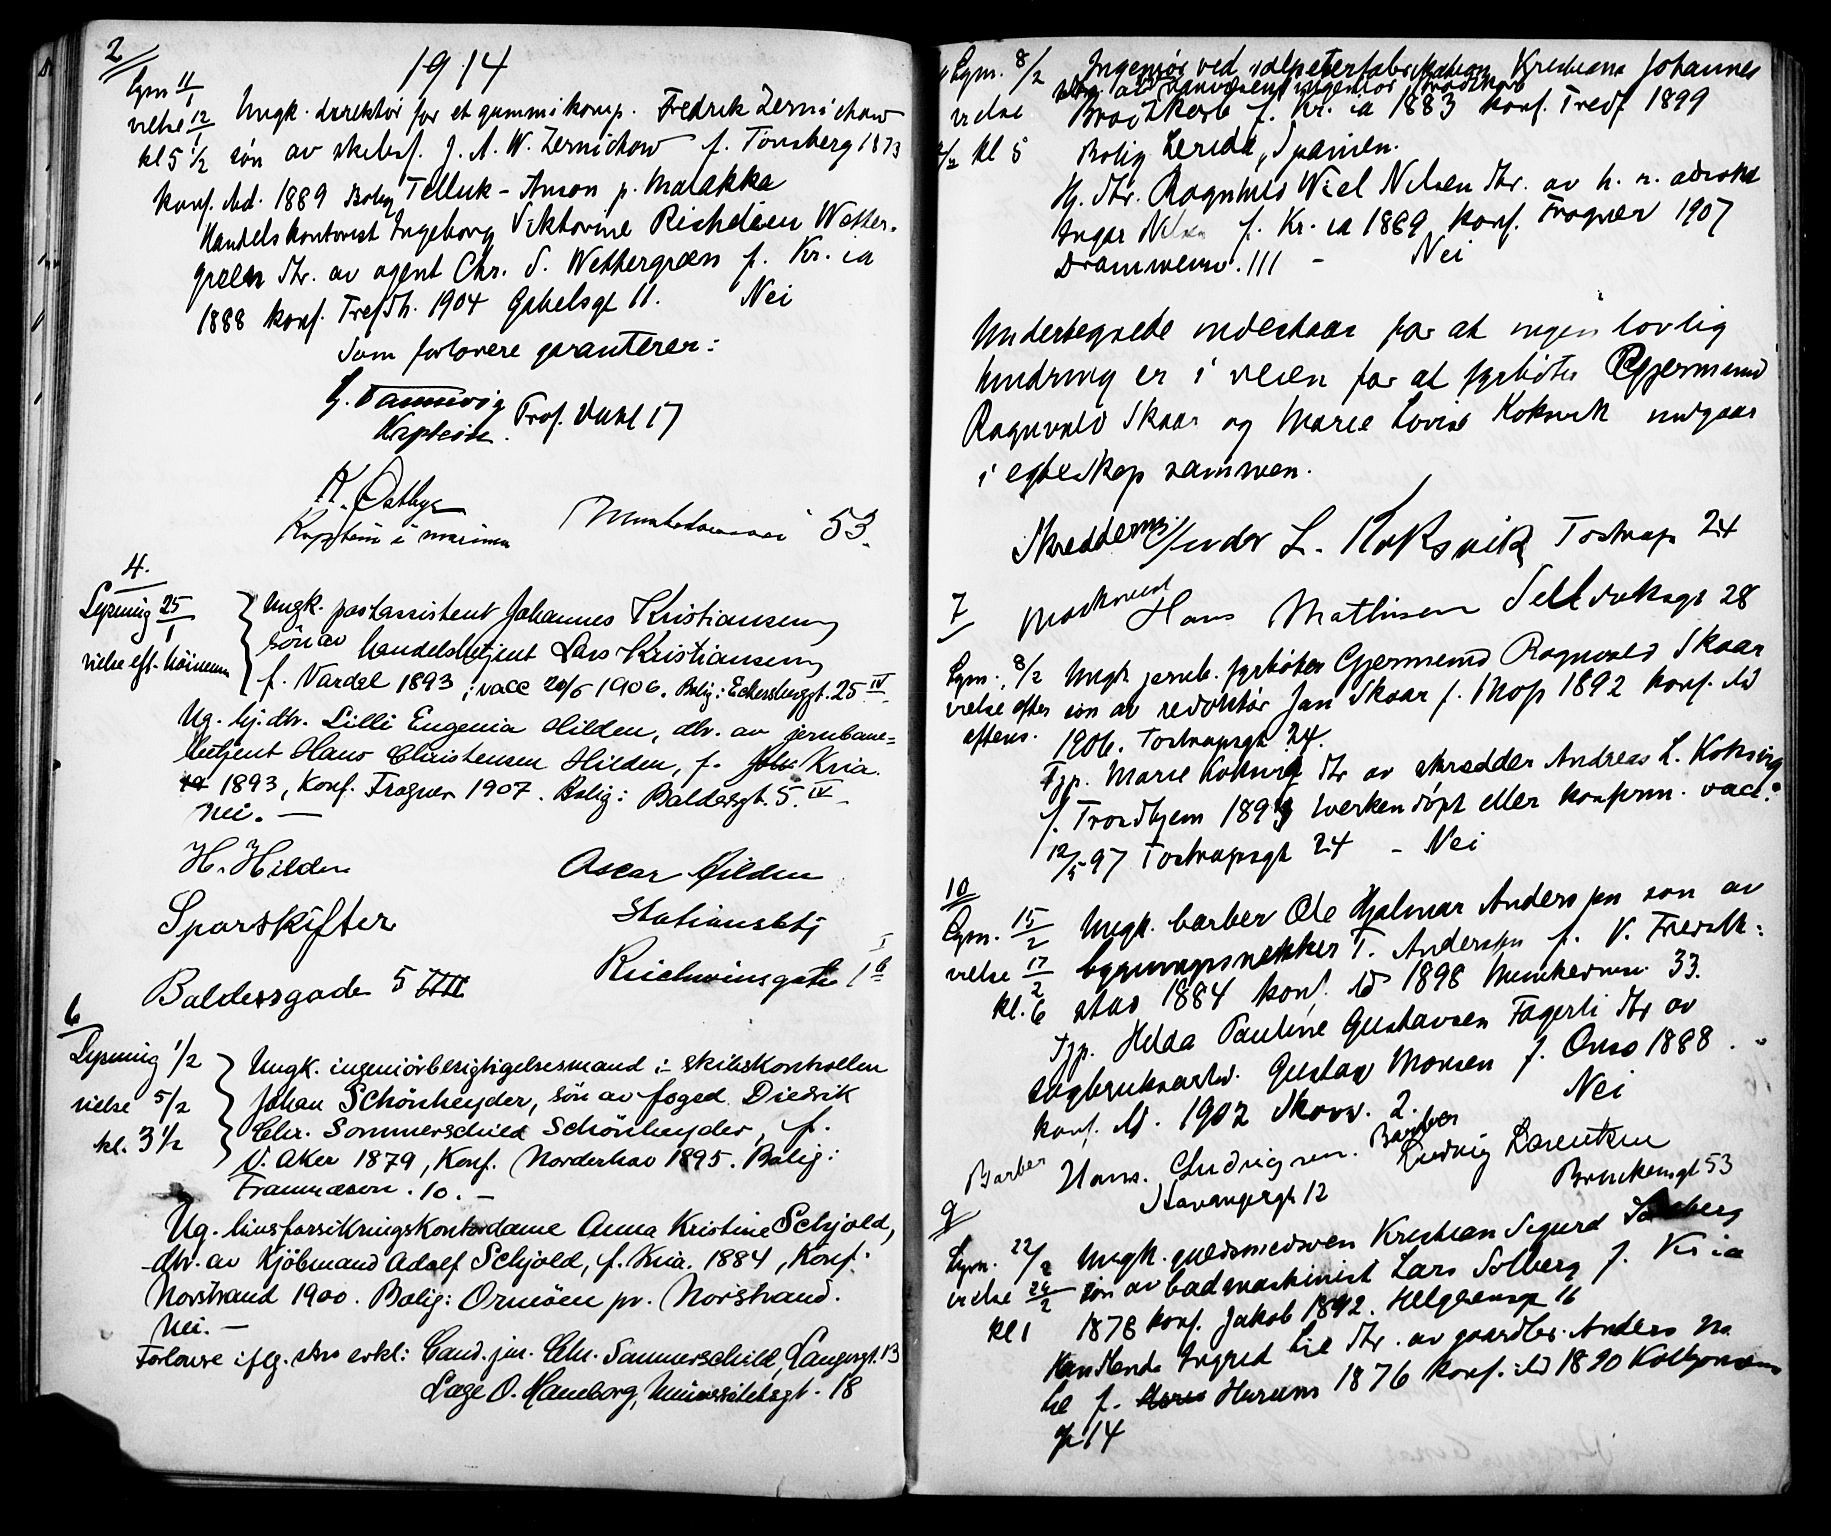 2
1914
Lysn 11/1
vielse 12/1
kl 5 1/2
Ungk. direktør for et gummikomp. Fredrik Zernichow
søn av skibsf. J. A. W. Zernichow f. Tønsberg 1873
konf. std. 1889 Bolig Telluk - Anson p. Malakka
Handelskontorist Ingeborg Viktorine Richdien Wetter-
green dtr. av agent Chr. S. Wettergreen f. Kr. ia
1888 konf. Trefdh. 1904 Gabelsgt 11. Nei
Som forlovere garanterer:
Kaptein. Prof. Dahl 17
K. Østbye
Kaptein i marinen 53.
4.
Lysning 25/1
vielse eft. høimessen
Ungk. postassistent Johannes Kristiansen
søn av handelsbetjent Lars Kristiansen
f. Vardal 1893; vacc 20/5 1906. Bolig: Eckersbergsgt. 25 IV
Ug. hj. dtr. Lilli Eugenia Hilden, dtr. av jernbane-
betjent Hans Christensen Hilden, f. Kria.
1893, Konf. Frogner 1907. Bolig: Baldersgt. 5. IV -
Nei. -
H. Hilden
Sporskifter
Baldersgade 5 IIII
Oscar Hilden
Stationsbtj
Reichweinsgate 1 b I
6
Lysning 1/2
vielse 5/2
kl. 3 1/2
Ungk. ingeniørbesigtigelsesmand i skibskontrollen
Johan Schönheyder, søn av foged Diedrik
Chr. Sommerschield Schönheyder, f.
V. Aker 1879, Konf. Norderhov 1895. Bolig:
Framnæsvn. 10. -
Ug. livsforsikringskontordame Anna Kristine Schjold,
dtr. av Kjøbmand Adolf Schjold, f. Kria. 1884, Konf.
Norstrand 1900. Bolig: Ormøen pr. Norstrand.
Nei. -
Forlovere iflg. skr. erkl: Cand. jur. Chr. Sommerschield, Langesgt. 13
Læge O. Hamborg, Universitetsgt. 18
Lysn. 8/2
vielse
kl 5
Ingeniør ved salpeterfabrikation Kristians Johannes
f. Kr. ia 1883 konf. Tredf 1899
Bolig Lerida, Spanien.
Hj. dtr. Ragnhild Wiel Nilsen dtr. av h. r. advokat
Ingar Nilsen f. Kr. ia 1889 konf. Frogner 1907
Drammensv. 111 - Nei
Undertegnede indestaar for at ingen lovlig
hindring er i veien for at fyrbøter Gjermund
Ragnvald Skaar og Marie Lovise Koksvik indgaar
i egteskap sammen.
Skredderm. Ander L. Koksvik Tostrupgt 24
7
Maskinist Hans Mathisen Seilduksgt 28
Lysn. 8/2
vielse efter
eftern.
Ungk jernb. fyrbøter Gjermund Ragnvald Skaar
søn av redaktør Jan Skaar f. Mos 1892 konf. std
1906. Tostrupsgt 24.
Tjp. Marie Koksvig dtr av skredder Andreas L. Koksvig
f. Trondhjem 1893 hverken døpt eller konfirm. vacc.
12/5 97 Tostrupsgt 24 - Nei
10
Lysn. 15/2
vielse 17/2
kl. 6
Ungk. barber Ole Hjalmar Andersen søn av
bygningssnekker T. Andersen f. V. Fredrik-
stad 1884 konf. std 1898 Munkedamsv. 33.
Tjp. Hilda Pauline Gustavsen Fagerli dtr av
sagbruksarbd. Gustav Monsen f. Onsø 1888.
konf. std. 1902 Skovv. 2. Nei
Barber Hans Ludvigsen.
Stavangergt 12
Barber
Ludvig Lorentzen
Brinkensgt 53
9
Lysn. 22/2
vielse 24/2
kl 1
Ungk. guldsmedsven Kristian Sigurd Solberg
søn av badmaskinist Lars Solberg f. Kr ia
1878 konf. Jakob 1892. Helgesensgt 16
Handlende Ingrid Lie dtr. av gaardbr. Anders
Lie f. Hurum 1876 konf. std 1890
gt 14